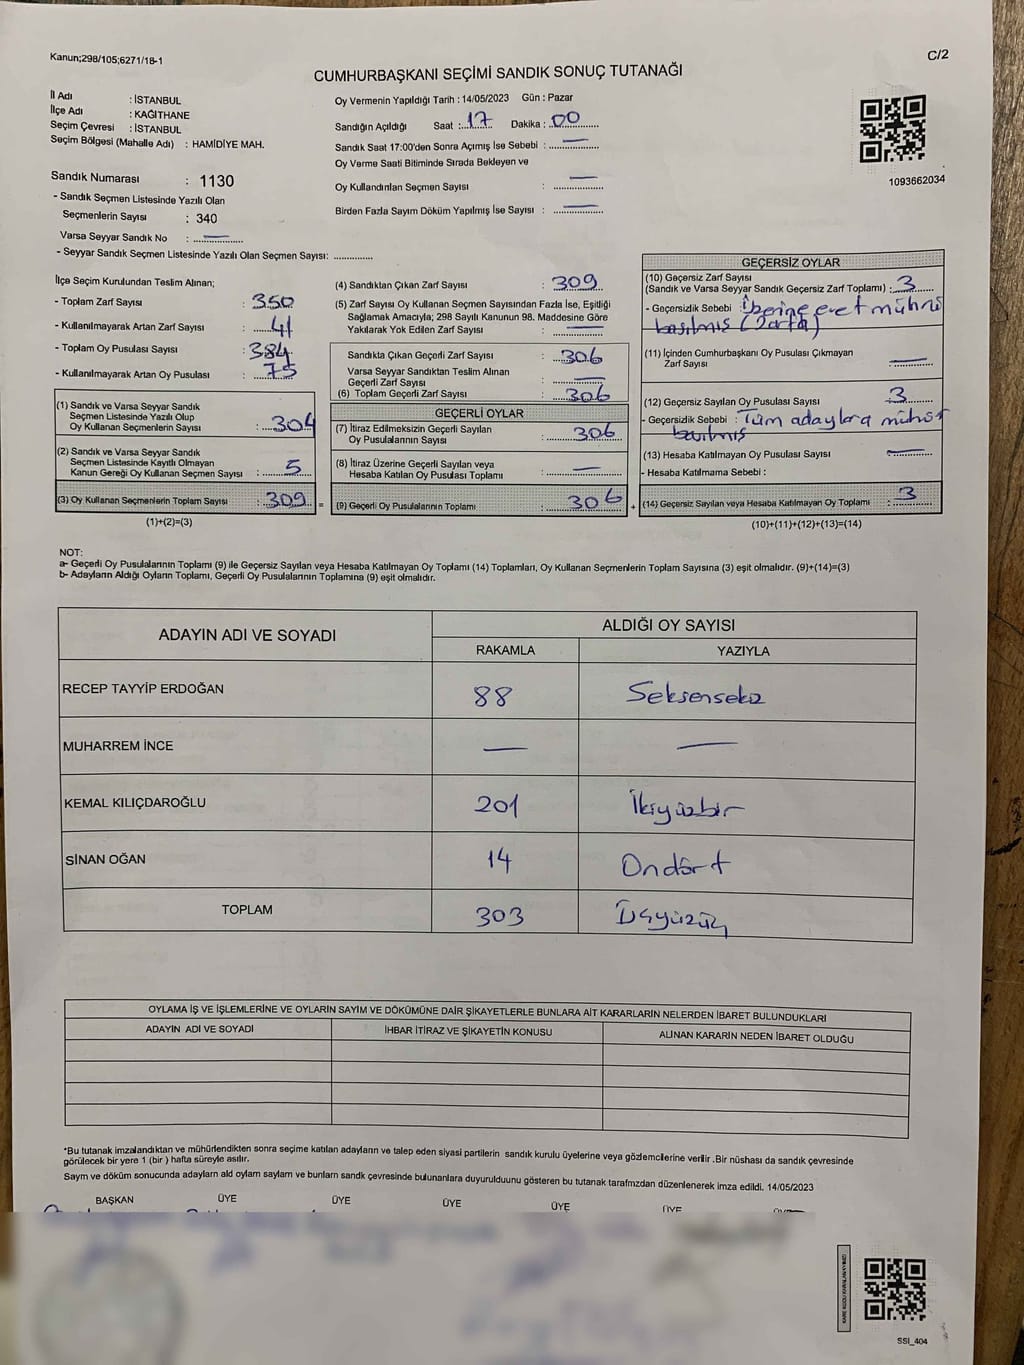 Kanun;298/105;6271/18-1
C/2
CUMHURBAŞKANI SEÇİMİ SANDIK SONUÇ TUTANAĞI
İl Adı : İSTANBUL
İlçe Adı : KAĞITHANE
Seçim Çevresi : İSTANBUL
Seçim Bölgesi (Mahalle Adı) : HAMİDİYE MAH.
Sandık Numarası : 1130
- Sandık Seçmen Listesinde Yazılı Olan
Seçmenlerin Sayısı : 340
Varsa Seyyar Sandık No : —
- Seyyar Sandık Seçmen Listesinde Yazılı Olan Seçmen Sayısı: ...............
Oy Vermenin Yapıldığı Tarih : 14/05/2023 Gün : Pazar
Sandığın Açıldığı Saat : 17 Dakika : 00
Sandık Saat 17:00'den Sonra Açımış İse Sebebi : —
Oy Verme Saati Bitiminde Sırada Bekleyen ve
Oy Kullandırılan Seçmen Sayısı : —
Birden Fazla Sayım Döküm Yapılmış İse Sayısı : —
1093662034
İlçe Seçim Kurulundan Teslim Alınan;
- Toplam Zarf Sayısı : 350
- Kullanılmayarak Artan Zarf Sayısı : 41
- Toplam Oy Pusulası Sayısı : 384
- Kullanılmayarak Artan Oy Pusulası : 75
(1) Sandık ve Varsa Seyyar Sandık
Seçmen Listesinde Yazılı Olup
Oy Kullanan Seçmenlerin Sayısı : 304
(2) Sandık ve Varsa Seyyar Sandık
Seçmen Listesinde Kayıtlı Olmayan
Kanun Gereği Oy Kullanan Seçmen Sayısı : 5
(3) Oy Kullanan Seçmenlerin Toplam Sayısı : 309 =
(1)+(2)=(3)
(4) Sandıktan Çıkan Zarf Sayısı : 309
(5) Zarf Sayısı Oy Kullanan Seçmen Sayısından Fazla İse, Eşitliği
Sağlamak Amacıyla; 298 Sayılı Kanunun 98. Maddesine Göre
Yakılarak Yok Edilen Zarf Sayısı : —
Sandıkta Çıkan Geçerli Zarf Sayısı : 306
Varsa Seyyar Sandıktan Teslim Alınan
Geçerli Zarf Sayısı : —
(6) Toplam Geçerli Zarf Sayısı : 306
GEÇERLİ OYLAR
(7) İtiraz Edilmeksizin Geçerli Sayılan
Oy Pusulalarının Sayısı : 306
(8) İtiraz Üzerine Geçerli Sayılan veya
Hesaba Katılan Oy Pusulası Toplamı : —
(9) Geçerli Oy Pusulalarının Toplamı : 306 +
GEÇERSİZ OYLAR
(10) Geçersiz Zarf Sayısı
(Sandık ve Varsa Seyyar Sandık Geçersiz Zarf Toplamı) : 3
- Geçersizlik Sebebi : Üzerine evet mührü
basılmış (zarfa)
(11) İçinden Cumhurbaşkanı Oy Pusulası Çıkmayan
Zarf Sayısı : —
(12) Geçersiz Sayılan Oy Pusulası Sayısı : 3
- Geçersizlik Sebebi : Tüm adaylara mühür
basılmış
(13) Hesaba Katılmayan Oy Pusulası Sayısı : —
- Hesaba Katılmama Sebebi :
(14) Geçersiz Sayılan veya Hesaba Katılmayan Oy Toplamı : 3
(10)+(11)+(12)+(13)=(14)
NOT:
a- Geçerli Oy Pusulalarının Toplamı (9) ile Geçersiz Sayılan veya Hesaba Katılmayan Oy Toplamı (14) Toplamları, Oy Kullanan Seçmenlerin Toplam Sayısına (3) eşit olmalıdır. (9)+(14)=(3)
b- Adayların Aldığı Oyların Toplamı, Geçerli Oy Pusulalarının Toplamına (9) eşit olmalıdır.
ADAYIN ADI VE SOYADI ALDIĞI OY SAYISI
RAKAMLA YAZIYLA
RECEP TAYYİP ERDOĞAN 88 Seksensekiz
MUHARREM İNCE — —
KEMAL KILIÇDAROĞLU 201 İkiyüzbir
SİNAN OĞAN 14 Ondört
TOPLAM 303 Üçyüzüç
OYLAMA İŞ VE İŞLEMLERİNE VE OYLARIN SAYIM VE DÖKÜMÜNE DAİR ŞİKAYETLERLE BUNLARA AİT KARARLARIN NELERDEN İBARET BULUNDUKLARI
ADAYIN ADI VE SOYADI İHBAR İTİRAZ VE ŞİKAYETİN KONUSU ALINAN KARARIN NEDEN İBARET OLDUĞU
*Bu tutanak imzalandıktan ve mühürlendikten sonra seçime katılan adayların ve talep eden siyasi partilerin sandık kurulu üyelerine veya gözlemcilerine verilir .Bir nüshası da sandık çevresinde
görülecek bir yere 1 (bir ) hafta süreyle asılır.
Sayım ve döküm sonucunda adayların ald oyların sayıların ve bunların sandık çevresinde bulunanlara duyurulduunu gösteren bu tutanak tarafmzdan düzenlenerek imza edildi. 14/05/2023
BAŞKAN ÜYE ÜYE ÜYE ÜYE ÜYE
KARE KODU KARALAMAYINIZ!
SSI_404